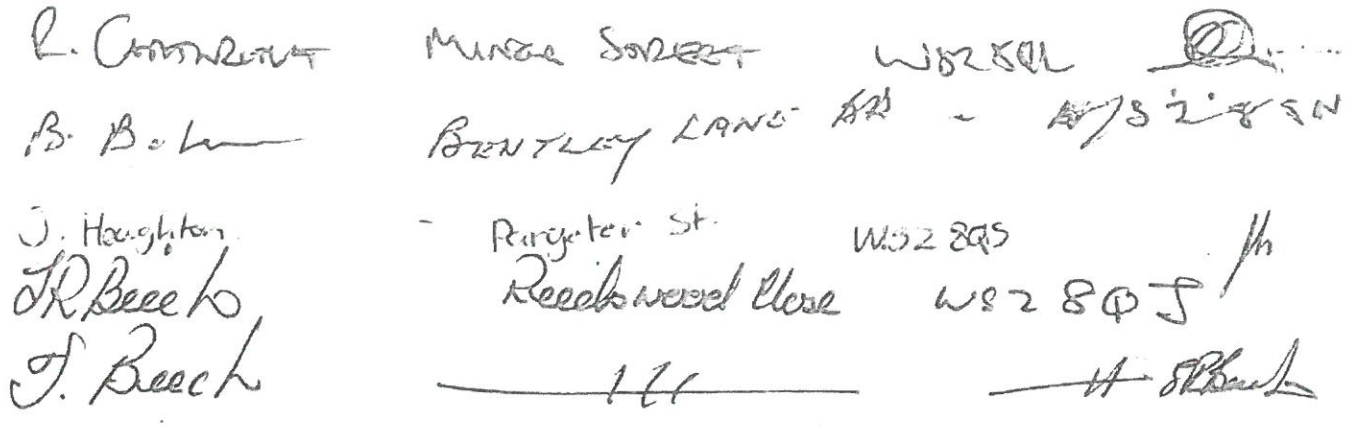 R. Cartwright Miner Street WS2 8QL
B. B BENTLEY LANE WS2 8SN
J. Houghton - Pargeter St. WS2 8QS
JR Beech Reedswood Close WS2 8QJ
J. Beech